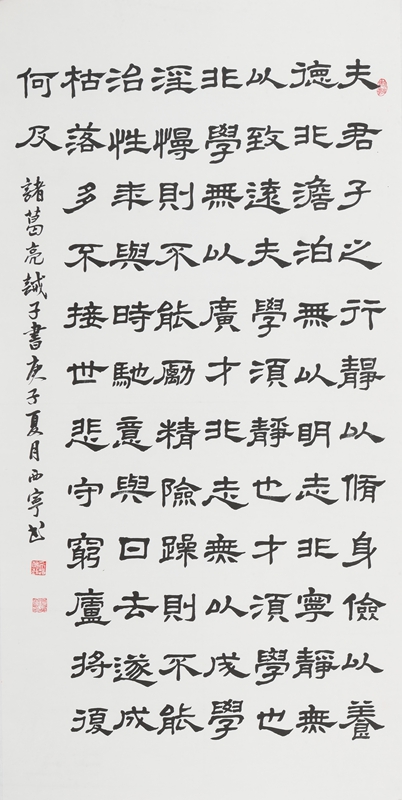 夫君子之行靜以脩身儉以養
德非澹泊無以明志非寧靜無
以致遠夫學須靜也才須學也
非學無以廣才非志無以成學
淫慢則不能勵精險躁則不能
治性年與時馳意與日去遂成
枯落多不接世悲守窮廬將復
何及
諸葛亮誡子書庚子夏月西寧书